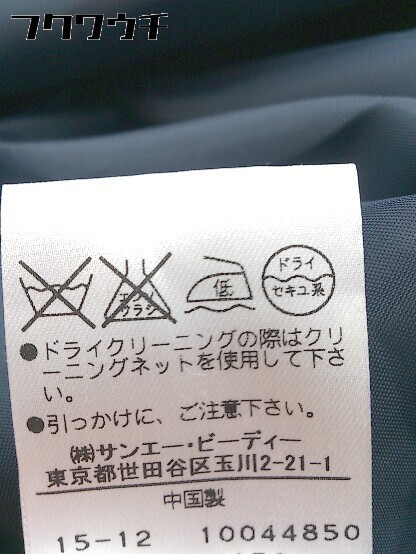 フクワウチ
エンソ
サラシ
低
ドライ
セキユ系
●ドライクリーニングの際はクリ
ーニングネットを使用して下さ
い。
●引っかけに、ご注意下さい。
(株)サンエー・ビーディー
東京都世田谷区玉川2-21-1
中国製
15-12 10044850